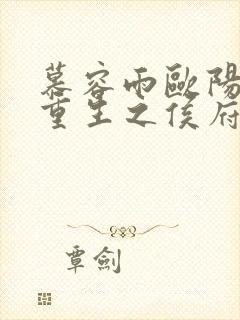 慕容雨歐陽
重生之侯府
覃劍